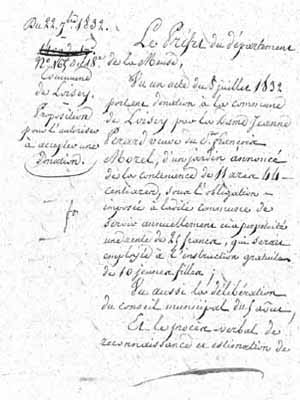 Du 22. 7bre 1832.
Nº 165
Commune
de Loisey
Proposition
pour l'autoriser
à accepter une
donation.
Le Préfet du département
de la Meuse,
Vu un acte du 8 juillet 1832
portant donation à la commune
de Loisey par la Dame Jeanne
Pérard veuve du Sr. François
Morel, d'un jardin annoncé
de la contenance de 11 ares 44
centiares, sous l'obligation
imposée à ladite commune de
servir annuellement et à perpétuité
une rente de 25 francs, qui sera
employée à l'instruction gratuite
de 10 jeunes filles ;
Vu aussi la délibération
du conseil municipal du 5 août,
Et le procès-verbal de
reconnaissance et estimation de